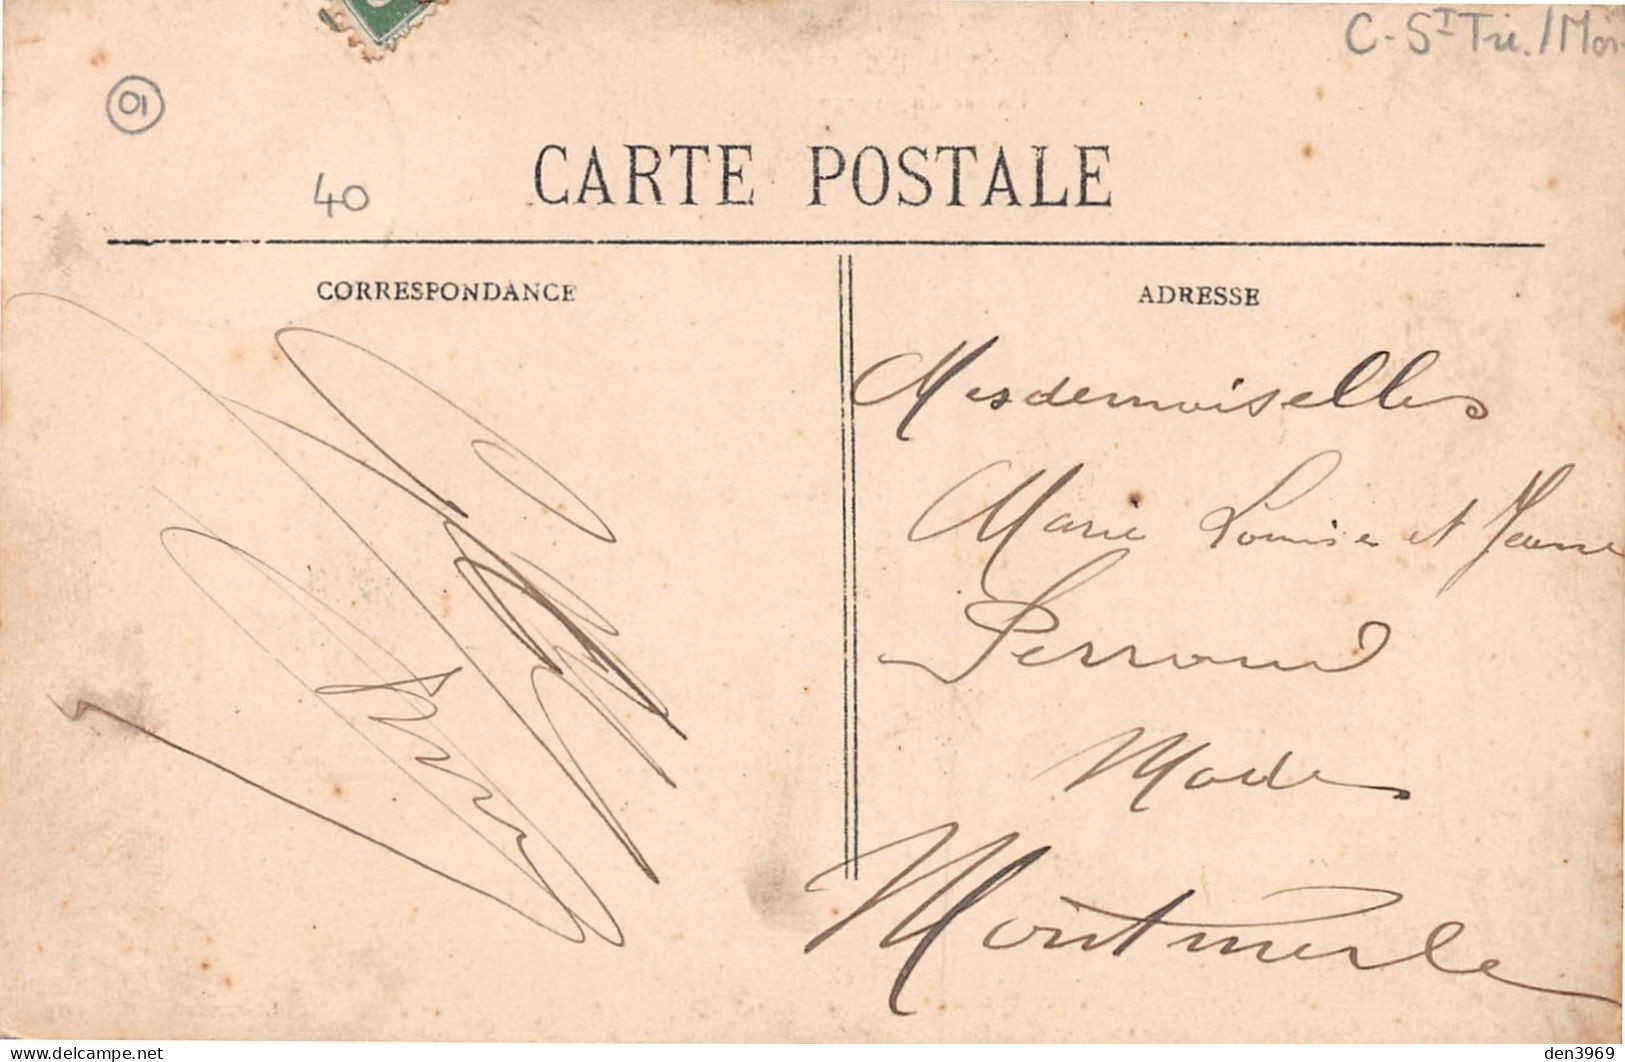 C - St Tri. / Mon
01
CARTE POSTALE
40
CORRESPONDANCE
ADRESSE
Mesdemoiselles
Marie Louise et Jeanne
Perroud
Modes
Montmerle
den3969